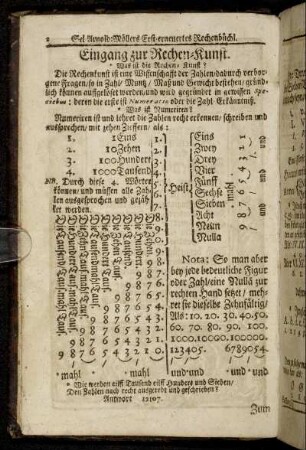 2 Sel. Arnold Möllers Erst-erneuertes Rechenbüchl.
Eingang zur Rechen-Kunst.
Was ist die Rechen-Kunst?
Die Rechenkunst ist eine Wissenschafft der Zahlen/dadurch verbor-
gene Fragen/so in Zahl/Müntz/Maß und Gewicht bestehen/gründ-
lich können auffgelöset werden/und wird gegründet in gewissen Spe-
ciebus: deren die erste ist Numeratio oder die Zahl Erkäntniß.
Was ist Numeriren?
Numeriren ist und lehret die Zahlen recht erkennen/schreiben und
aussprechen/mit zehen Ziffern/als:
1. 1 Eins
2. 10 Zehen
3. 100. Hundert
4. 1000 Tausend
NB. Durch diese 4. Wörter
können und müssen alle Zah-
len ausgesprochen und gezäh-
let werden.
Heist
Eins
Zwey
Drey
Vier
Fünff
Sechse
Sieben
Acht
Neun
Nulla
mahl
und
9
98
987
9876
98765
987654
9876543
98765432
987654321
9876543210.
mahl mahl und
Nota: So man aber
bey jede bedeutliche Figur
oder Zahl eine Nulla zur
rechten Hand setzet/meh-
ret sie dieselbe Zehnfältig/
Als: 10. 20. 30. 40. 50.
60. 70. 80. 90. 100.
1000. 10000. 100000.
123405. 6789054.
Wie werden eilff Tausend eilff Hundert und Sieben/
Den Zahlen nach recht ausgeredt und geschrieben?
Antwort 12107.
Zum